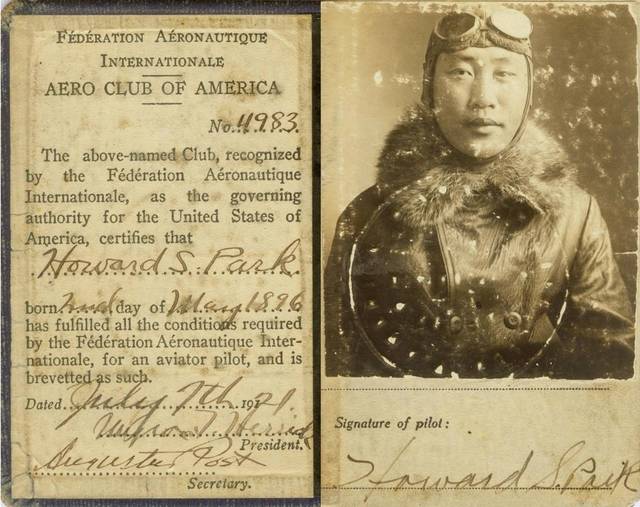 FÉDÉRATION AÉRONAUTIQUE
INTERNATIONALE
AERO CLUB OF AMERICA
No. 4983.
The above-named Club, recognized
by the Fédération Aéronautique
Internationale, as the governing
authority for the United States of
America, certifies that
Howard S. Park.
born 2nd day of May 1896
has fulfilled all the conditions required
by the Fédération Aéronautique Inter-
nationale, for an aviator pilot, and is
brevetted as such.
Dated July 7th 1921.
President.
Augustus Post
Secretary.
Signature of pilot:
Howard S. Park